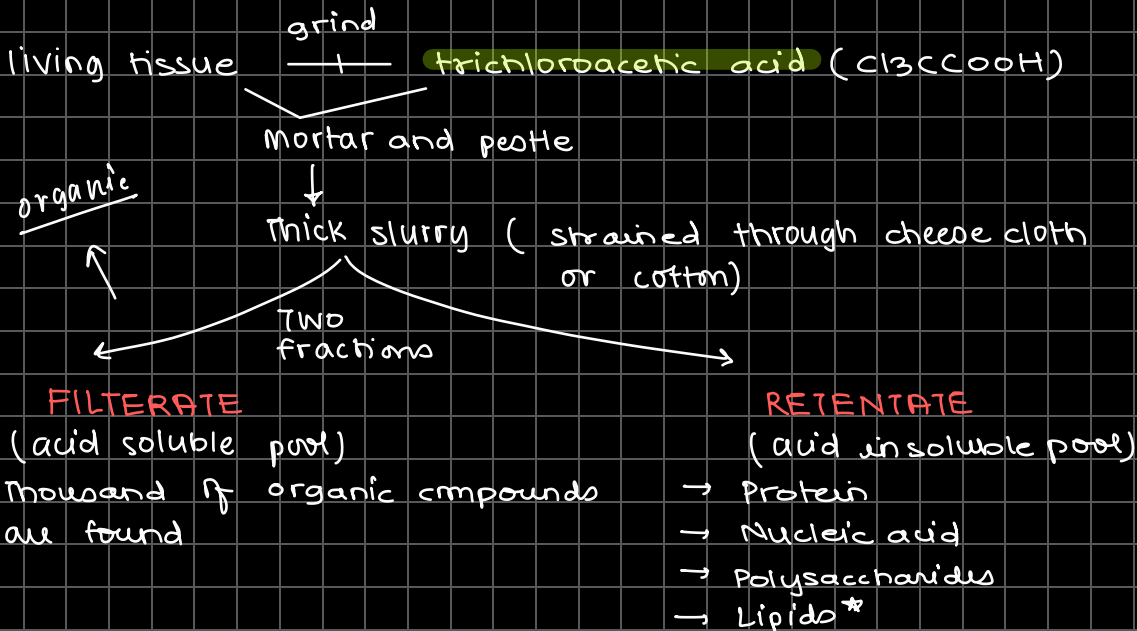 grind
living tissue + trichloroacetic acid (Cl3CCOOH)
Mortar and pestle
organic
Thick slurry ( strained through cheese cloth
or cotton)
TWO
fractions
FILTERATE
(acid soluble pool)
Thousand of organic cmpounds
are found
RETENTATE
(acid insoluble pool)
→ Protein
→ Nucleic acid
→ Polysaccharides
→ Lipids*